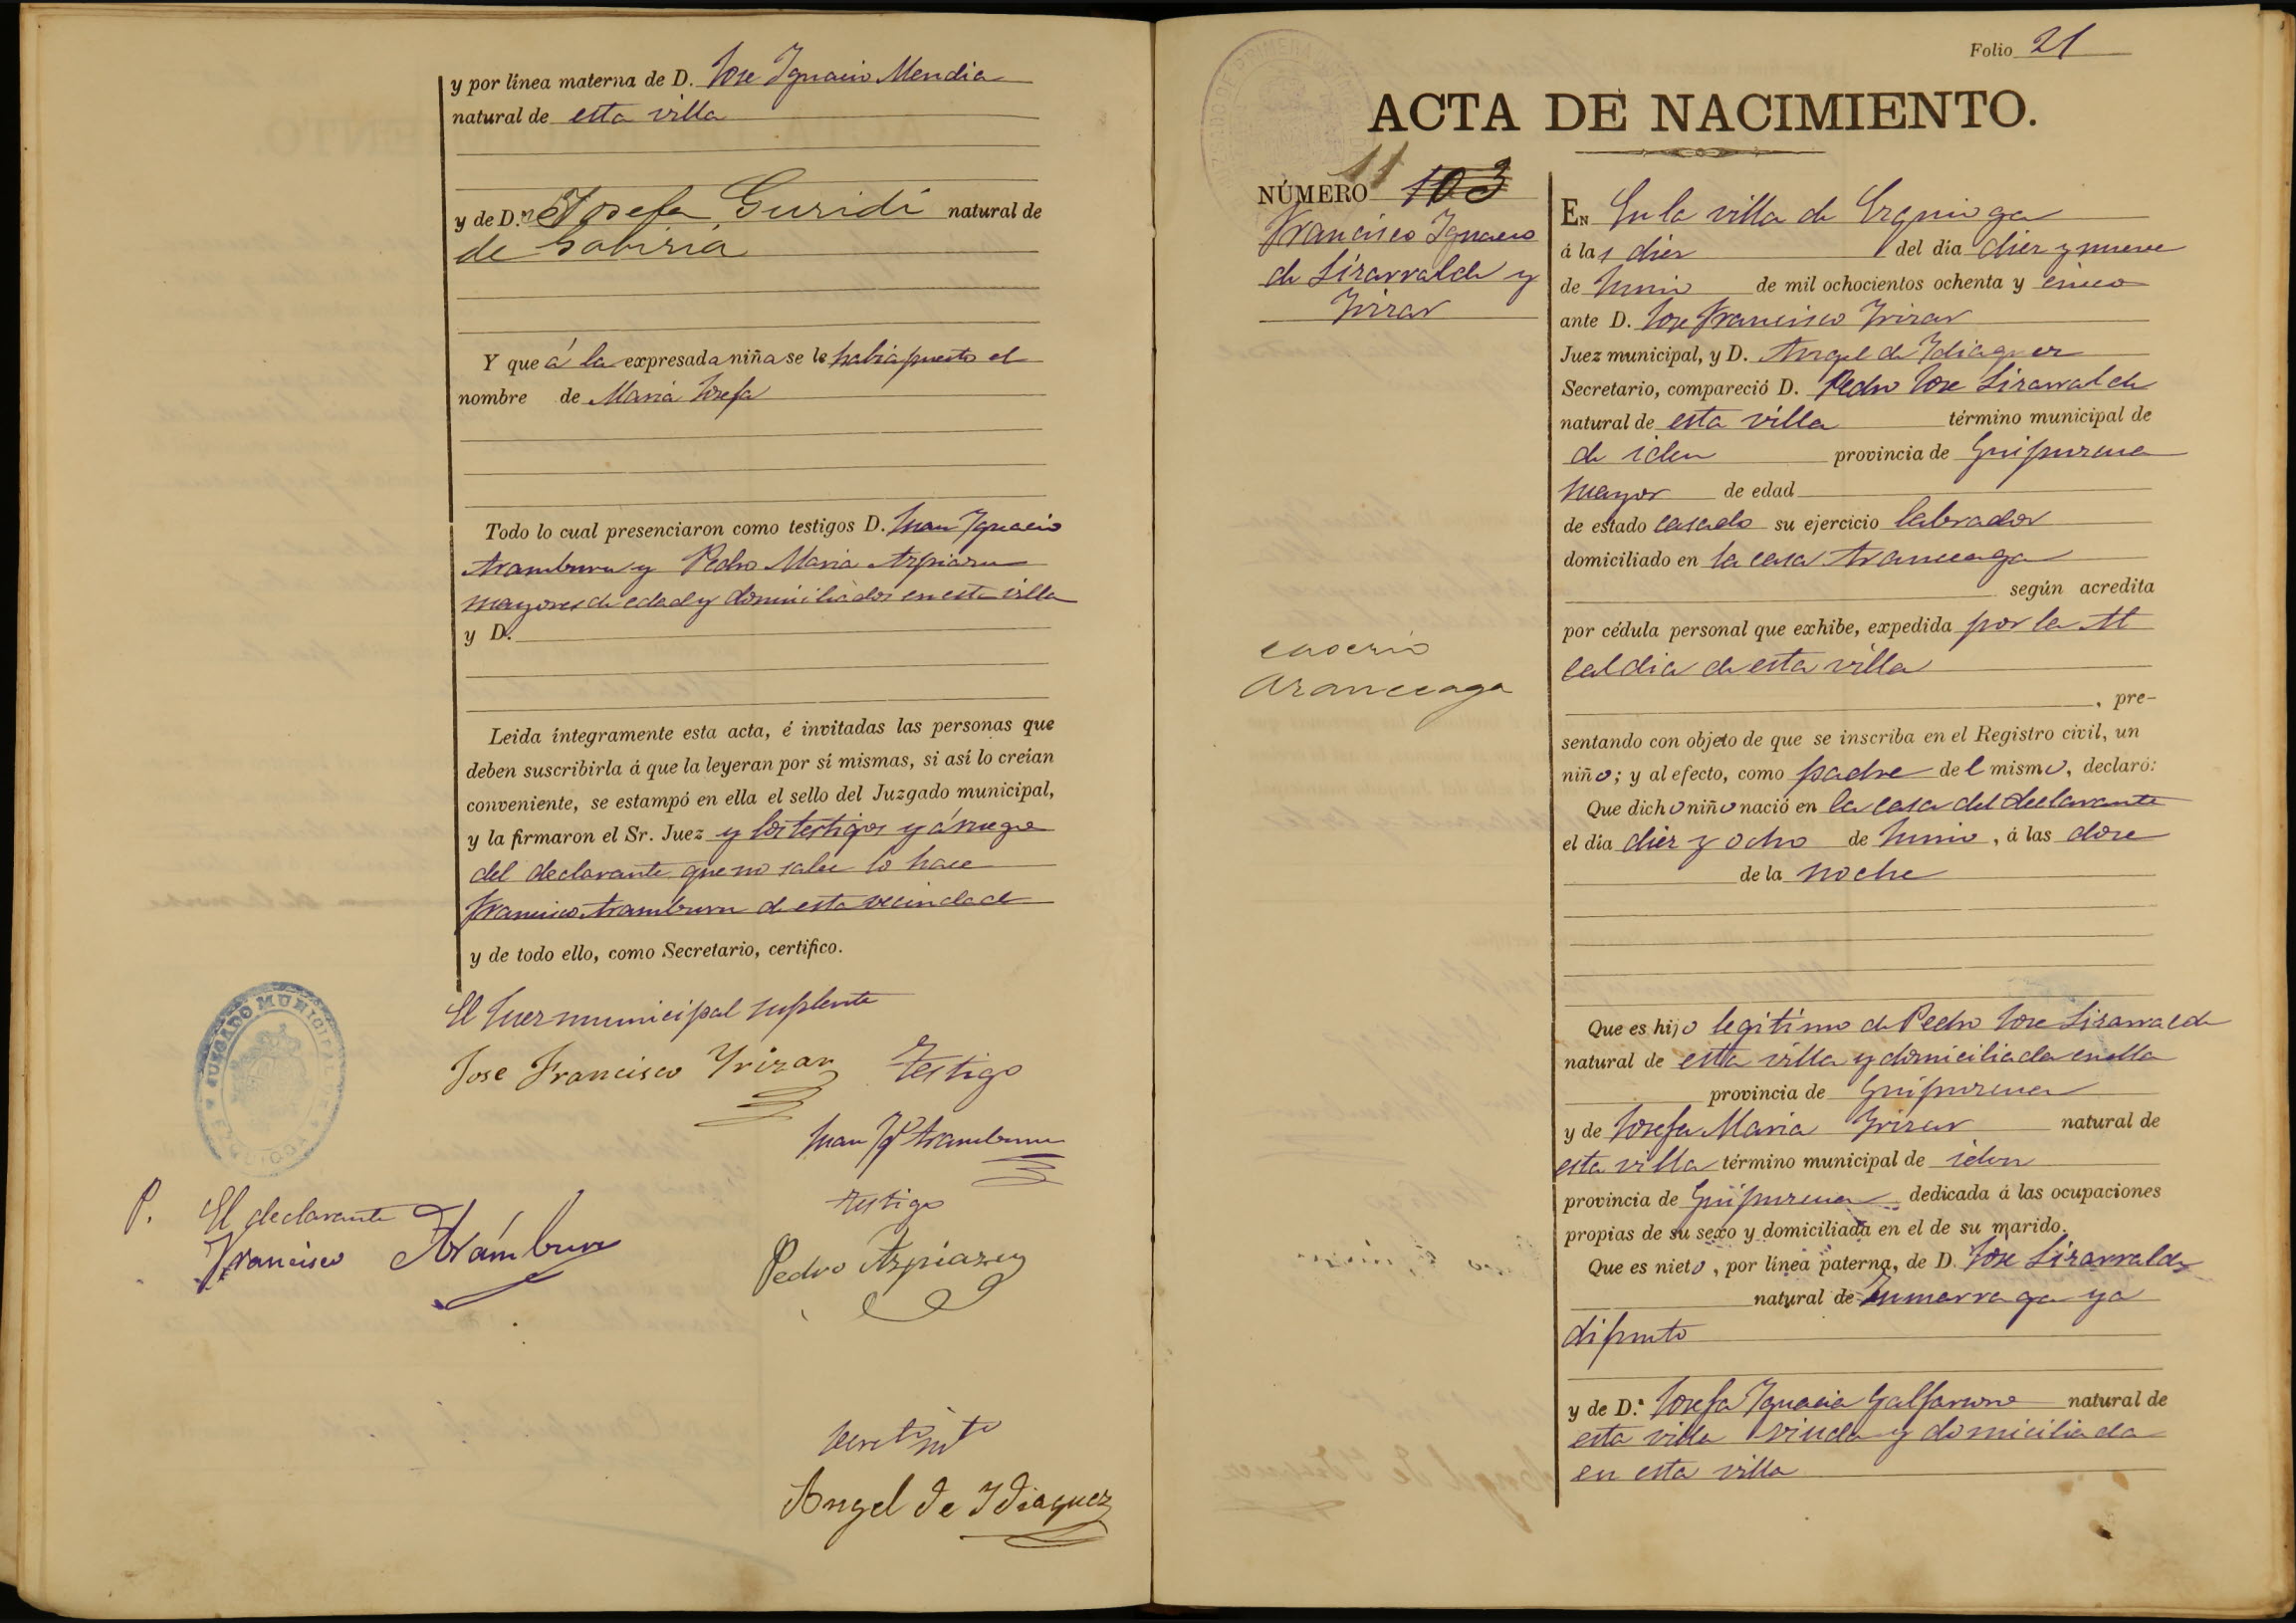 y por línea materna de D. Jose Ignacio Mendia
natural de esta villa
y de D.ª Josefa Guridi natural de
de Gabiria
Y que á la expresada niña se le habia puesto el
nombre de Maria Josefa
Todo lo cual presenciaron como testigos D. Juan Ignacio
Aramburu y Pedro Maria Azpiazu
mayores de edad y domiciliados en esta villa
y D.
Leida íntegramente esta acta, é invitadas las personas que
deben suscribirla á que la leyeran por sí mismas, si así lo creían
conveniente, se estampó en ella el sello del Juzgado municipal,
y la firmaron el Sr. Juez y los testigos y á ruego
del declarante que no sabe lo hace
Francisco Aramburu de esta vecindad
y de todo ello, como Secretario, certifico.
El Juez municipal suplente
Jose Francisco Yrizar
testigo
Juan Ygº Aramburu
testigo
Pedro Azpiazu
P. El declarante
Francisco Arámburu
JUZGADO MUNICIPAL DE
Angel de Ydiaquez
Folio 21
ACTA DE NACIMIENTO.
NÚMERO 11 103
Francisco Ignacio
de Lizarralde y
Yrizar
caserio
Aranceaga
EN En la villa de Ezquioga
á las diez del día diez y nueve
de Junio de mil ochocientos ochenta y cinco
ante D. Jose Francisco Yrizar
Juez municipal, y D. Angel de Ydiaquez
Secretario, compareció D. Pedro Jose Lizarralde
natural de esta villa término municipal de
de idem provincia de Guipuzcua
mayor de edad
de estado casado su ejercicio labrador
domiciliado en la casa Aranceaga
según acredita
por cédula personal que exhibe, expedida por la Al
caldia de esta villa
, pre-
sentando con objeto de que se inscriba en el Registro civil, un
niño; y al efecto, como padre del mismo, declaró:
Que dicho niño nació en la casa del declarante
el día diez y ocho de Junio, á las doze
de la noche
Que es hijo legitimo de Pedro Jose Lizarralde
natural de esta villa y domiciliada en ella
provincia de Guipuzcua
y de Josefa Maria Yrizar natural de
esta villa término municipal de idem
provincia de Guipuzcua dedicada á las ocupaciones
propias de su sexo y domiciliada en el de su marido.
Que es nieto, por línea paterna, de D. Jose Lizarralde
natural de Zumarraga ya
difunto
y de D.ª Josefa Ignacia Galfarsoro natural de
esta villa viuda y domiciliada
en esta villa